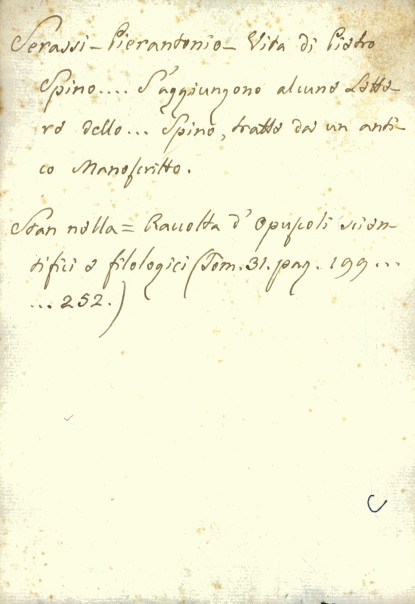 Serassi - Pierantonio - Vita di Pietro
Spino.... S'aggiungono alcune Lette-
re dello... Spino, tratte da un anti-
co Manoscritto.
Stan nella = Raccolta d'Opuscoli scien-
tifici e filologici (Tom. 31. pag. 199...
... 252.)
C